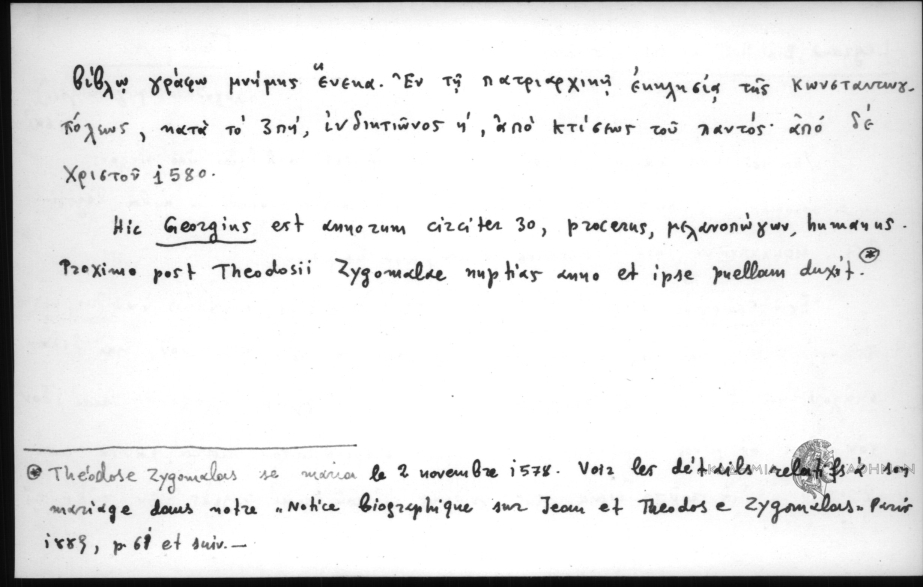 βίβλῳ γράφω μνήμης ἕνεκα. Ἐν τῇ πατριαρχικῇ ἐκκλησίᾳ τῆς Κωνσταντινου-
πόλεως, κατὰ τὸ ζπή, ἰνδικτιῶνος ή, ἀπὸ κτίσεως τοῦ παντός· ἀπό δέ
Χριστοῦ 1580.
Hic Georgius est annorum circiter 30, procerus, μελανοπώγων, humanus.
Proximo post Theodosii Zygomalae nuptias anno et ipse puellam duxit.*
* Théodose Zygomalas se maria le 2 novembre 1578. Voir les détails relatifs à son
mariage dans notre "Notice biographique sur Jean et Théodose Zygomalas" Paris
1889, p. 61 et suiv.—